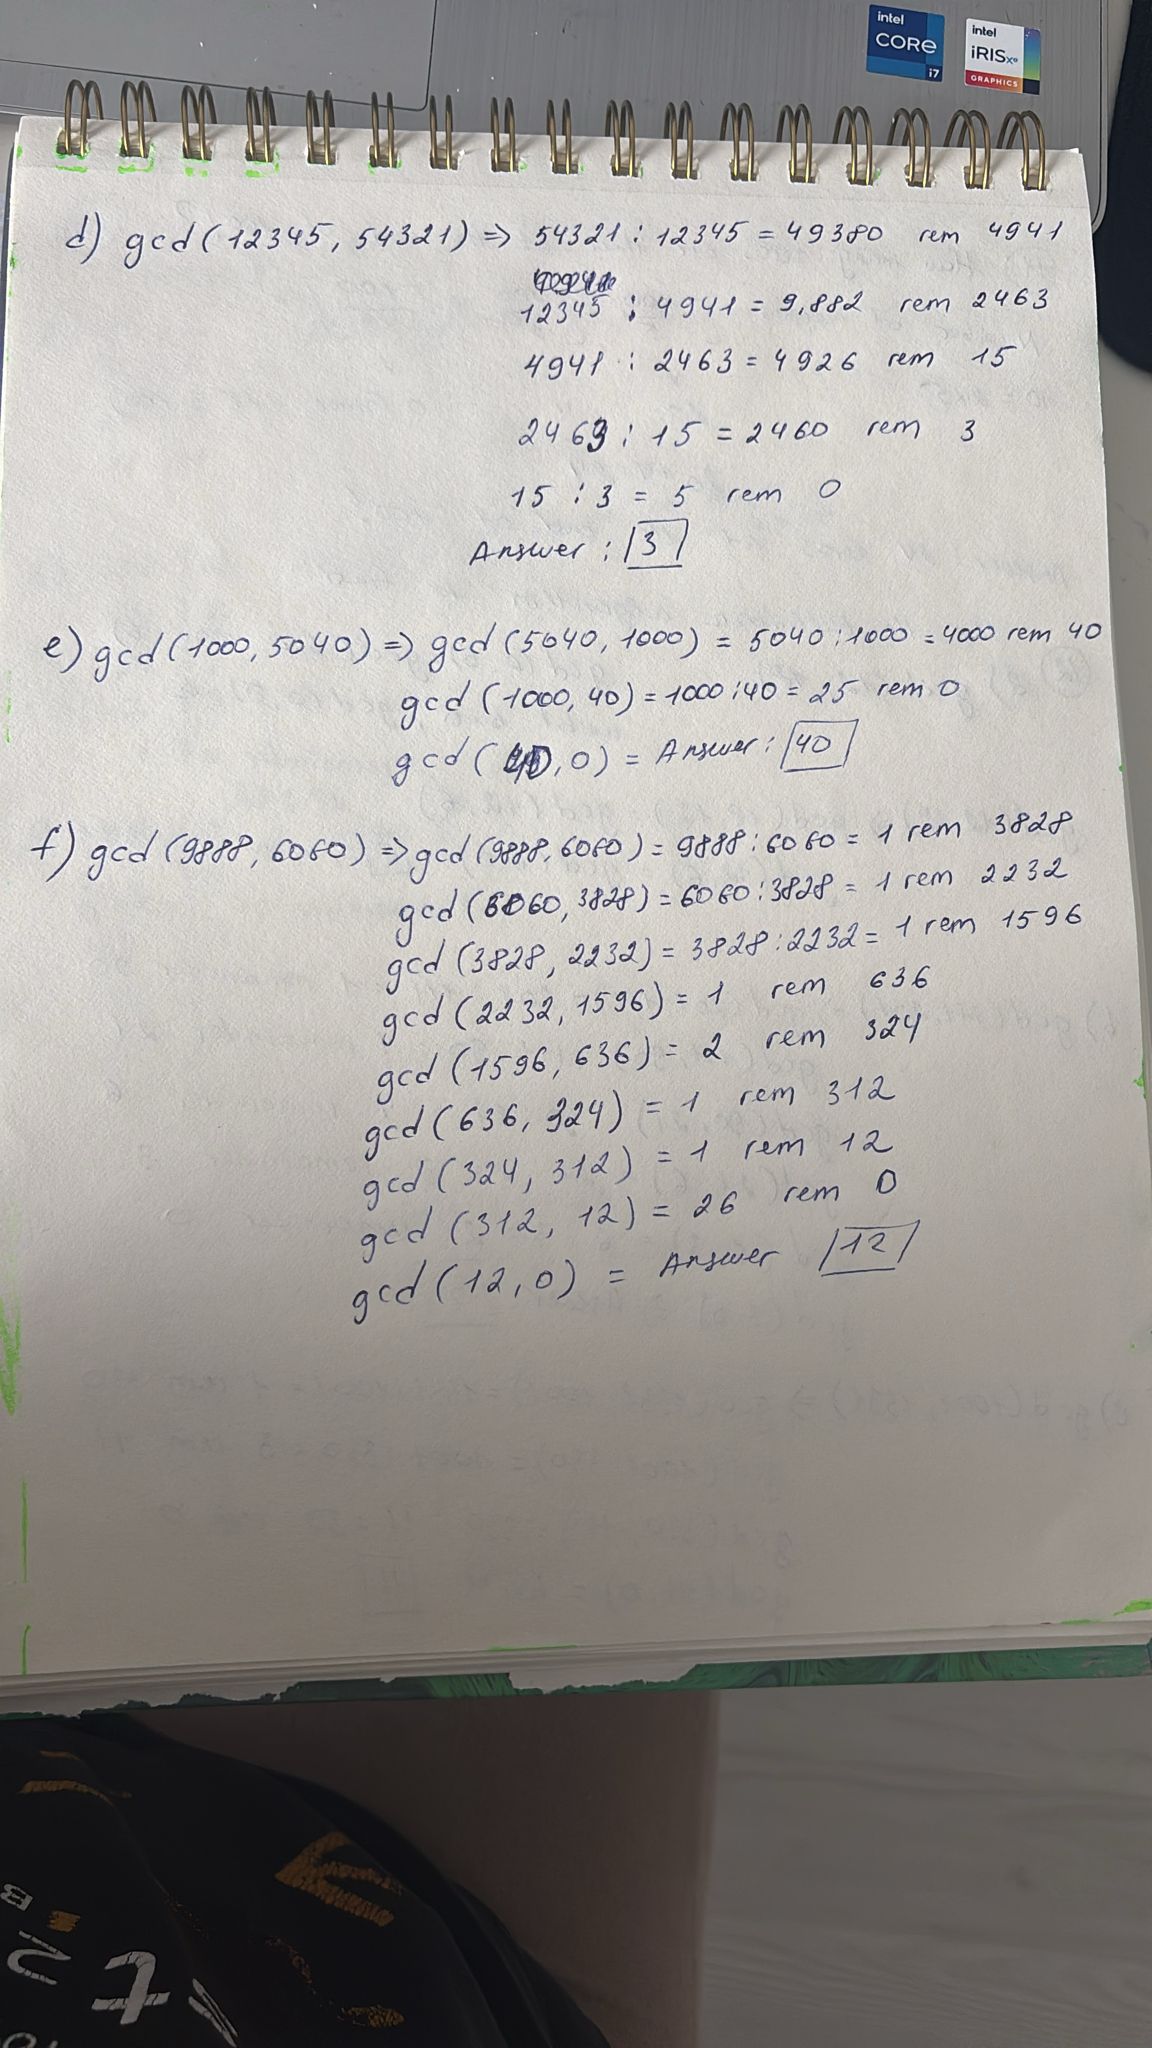 intel
CORE
i7
intel
iRISxe
GRAPHICS
d) gcd(12345, 54321) => 54321 : 12345 = 49380 rem 4941
12345 : 4941 = 9,882 rem 2463
4941 : 2463 = 4926 rem 15
2463 : 15 = 2460 rem 3
15 : 3 = 5 rem 0
Answer : 3
e) gcd(1000, 5040) => gcd(5040, 1000) = 5040 : 1000 = 4000 rem 40
gcd(1000, 40) = 1000 : 40 = 25 rem 0
gcd(40, 0) = Answer : 40
f) gcd(9888, 6060) => gcd(9888, 6060) = 9888 : 6060 = 1 rem 3828
gcd(6060, 3828) = 6060 : 3828 = 1 rem 2232
gcd(3828, 2232) = 3828 : 2232 = 1 rem 1596
gcd(2232, 1596) = 1 rem 636
gcd(1596, 636) = 2 rem 324
gcd(636, 324) = 1 rem 312
gcd(324, 312) = 1 rem 12
gcd(312, 12) = 26 rem 0
gcd(12, 0) = Answer 12